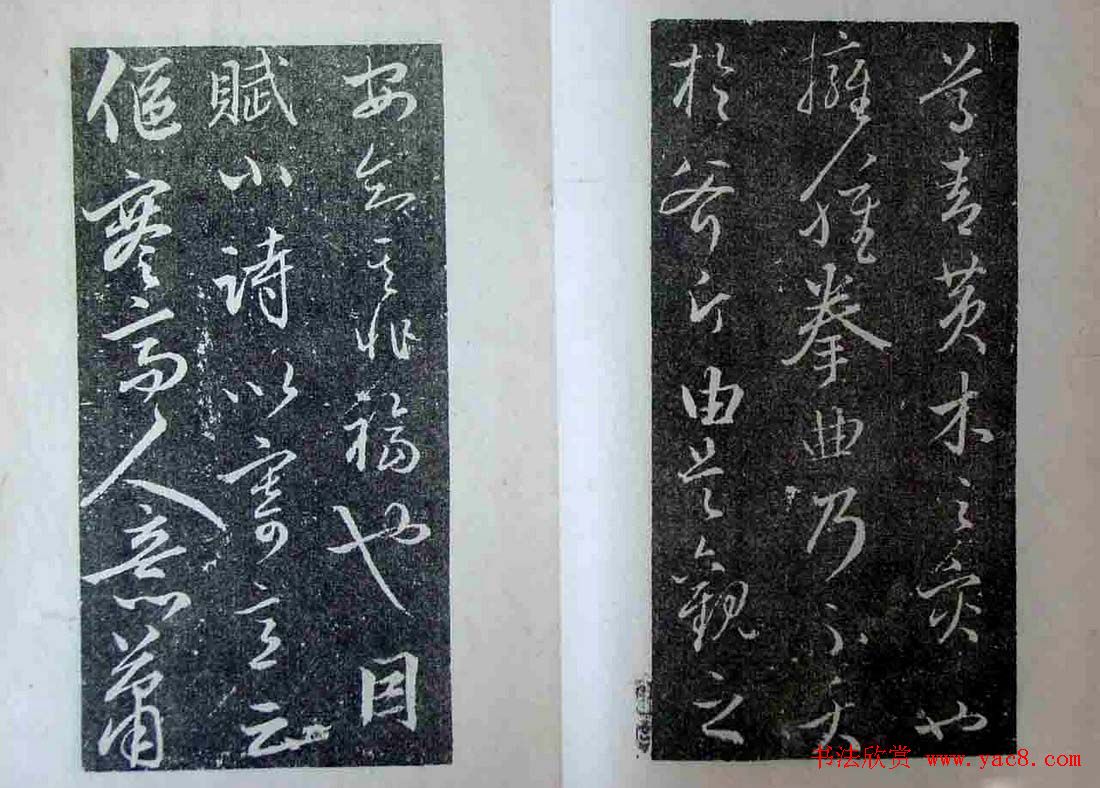 尊青黄木之災也
擁腫拳曲乃不夭
於斧斤由是觀之
安知其非福也因
賦小詩以寄言云
偃蹇高人意蕭
书法欣赏 www.yac8.com